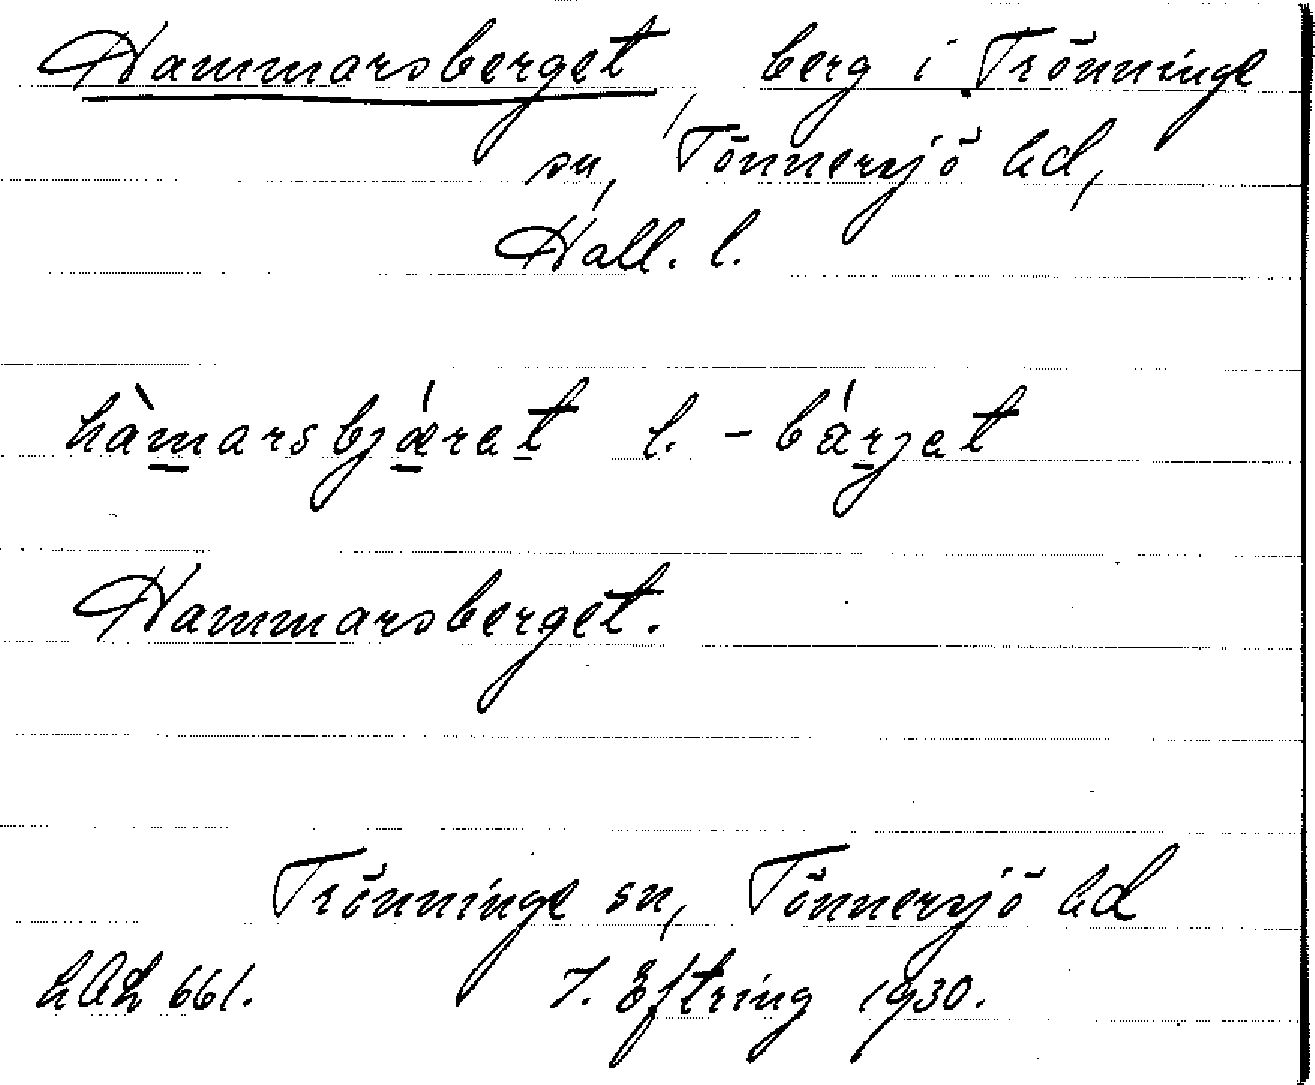 Hammarsberget, berg i Trönninge
sn, Tönnersjö hd,
Hall. l.
hàmarsbjǽrat l. -bárjat
Hammarsberget.
Trönninge sn, Tönnersjö hd
LAL 661. J. Eftring 1930.